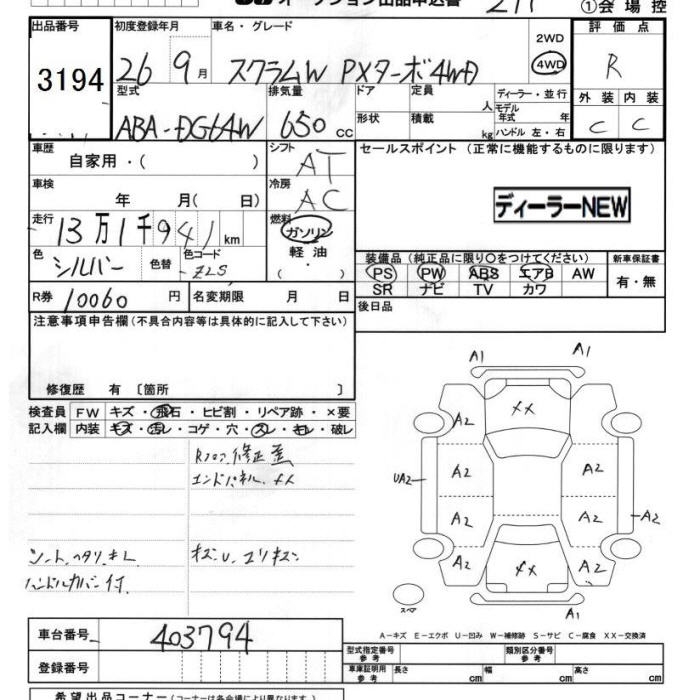 オークション出品申込書
①会場控
出品番号 初度登録年月 車名・グレード 2WD 4WD 評価点
3194 26 9月 スクラムW PXターボ4WD R
型式 排気量 ドア 定員 人 ディーラー・並行 モデル年式 年 外装 内装
ABA-DG64W 650 cc 形状 積載 kg ハンドル 左・右 C C
車歴 自家用・( ) シフト AT セールスポイント(正常に機能するものに限ります)
車検 年 月(日) 冷房 AC
ディーラーNEW
走行 13万1千941km 燃料 ガソリン・軽油・( )
色 シルバー 色替 色コード ZLS
装備品(純正品に限り○をつけてください) 新車保証書
PS PW ABS エアB AW 有・無
SR ナビ TV カワ
R券 10060円 名変期限 月 日 後日品
注意事項申告欄(不具合内容等は具体的に記入して下さい)
修復歴 有〔箇所 〕
検査員 FW キズ・飛石・ヒビ割・リペア跡・×要
記入欄 内装 キズ・汚レ・コゲ・穴・スレ・キレ・破レ
修正歪
エンドパネル XX
シート ヘタリ キレ
ハンドルカバー付
キズU エクキズ
A1 A1
A2 XX
UA2 A2 A2
A2 A2 A2
A2 XX A2
スペア A1
A-キズ E-エクボ U-凹み W-補修跡 S-サビ C-腐食 XX-交換済
車台番号 403794
登録番号
型式指定番号 参考 類別区分番号 参考
車庫証明用 参考 長さ cm 幅 cm 高さ cm
希望出品コーナー(コーナーは各会場により異なります)